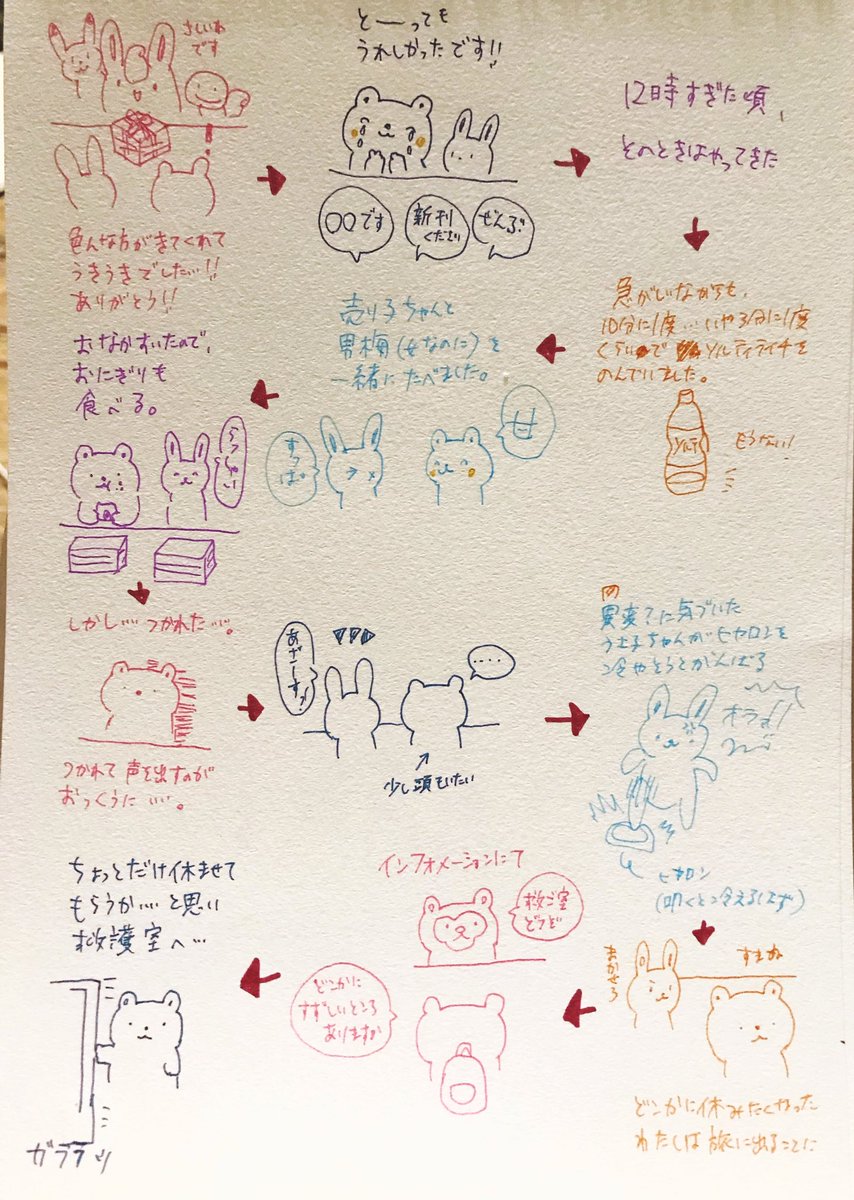 さしいれ
です
色んな方がきてくれて
うきうきでした…!!
ありがとう!!
とーっても
うれしかったです!!
〇〇です
新刊
ください
ぜんぶ
12時すぎた頃、
そのときはやってきた
急がしいながらも、
10分に1度…いや3分に1度
くらいで ソルティライチを
のんでいました。
ソルティ
もうない!
売り子ちゃんと
男梅(女なのに)を
一緒にたべました。
すっぱ
おなかすいたので、
おにぎりも
食べる。
らっしゃい
しかし…つかれた…。
つかれて声を出すのが
おっくうに…。
あざーすっ!
‥‥
少し頭もいたい
異変に気づいた
うさ子ちゃんがヒヤロンを
冷やそうとがんばる
オラァ!!
ヒヤロン
(叩くと冷えるはず)
まかせろ
すまぬ
どこかに休みたくなった
わたしは旅に出ることに
インフォメーションにて
救ご室
どうぞ
どこかに
すずしいところ
ありますか
ちょっとだけ休ませて
もらうか…と思い
救護室へ…
ガララッ